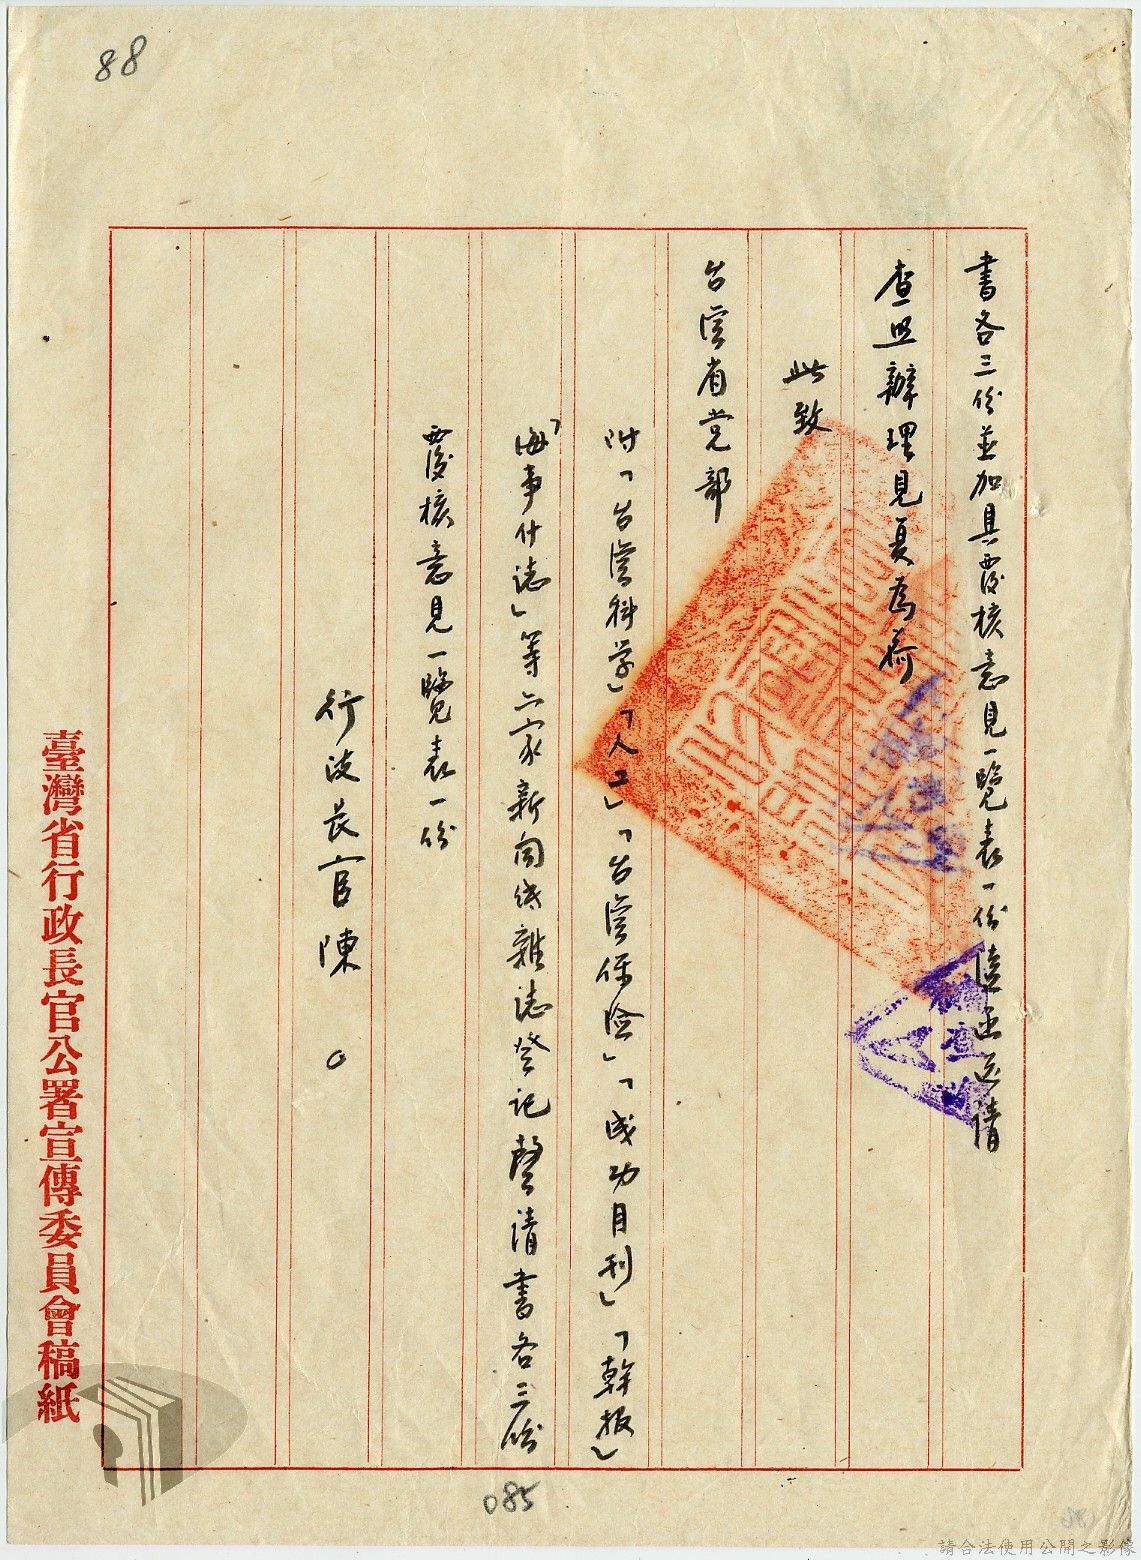 88
書各三份並加具覆核意見一覽表一份隨函送請
查照辦理見复為荷
此致
台湾省党部
附「台湾科学」「人工」「台湾保险」「成功月刊」「幹报」
「海事什誌」等六家新闻纸雜誌登记聲请書各三份
覆核意見一覽表一份
行政长官陳○
臺灣省行政長官公署宣傳委員會稿紙
085
請合法使用公開之影像